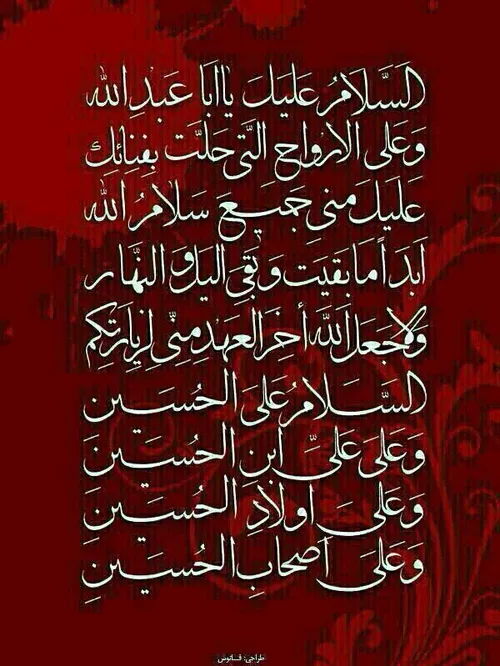 اَلسَّلامُ عَلَيكَ يا اَبا عَبدِ الله
وَعَلى الارواحِ الَّتى حَلَّت بِفِنائِكَ
عَلَيكَ مِنى جَميعَ سَلامُ الله
اَبَداً ما بَقيَت وَ بَقِىَ اليل و النهار
وَلا جَعَلَ الله أخِرَ العَهدِ مِنّى لِزيارَتِكُم
السَّلامُ عَلىَ الحُسَين
وَعَلى عَلىِّ ابنِ الحُسَينَ
وَعَلىَ اولادِ الحُسَينَ
وَعَلىَ اَصحابِ الحُسَينِ
طراحی: فانوس